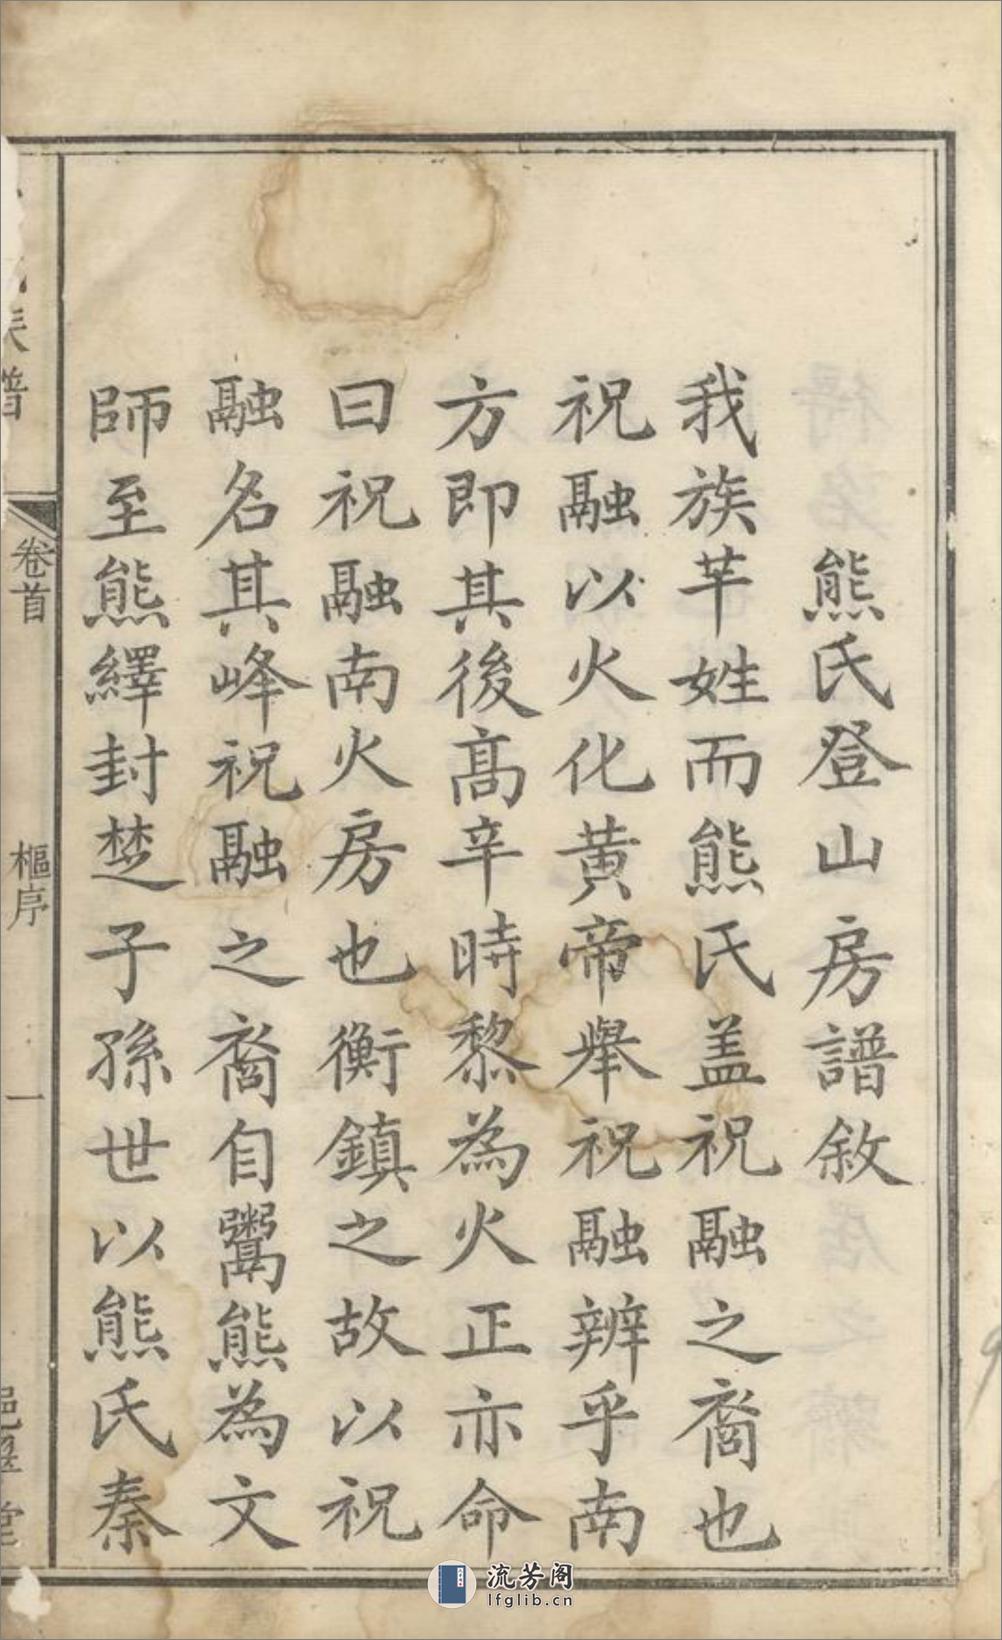 熊氏登山房譜敘
我族芊姓而熊氏盖祝融之裔也
祝融以火化黄帝舉祝融辨乎南
方即其後髙辛時黎為火正亦命
曰祝融南火房也衡鎮之故以祝
融名其峰祝融之裔自鬻熊為文
師至熊繹封楚子孫世以熊氏秦
族譜
卷首
樞序
一
堂
流芳阁
lfglib.cn